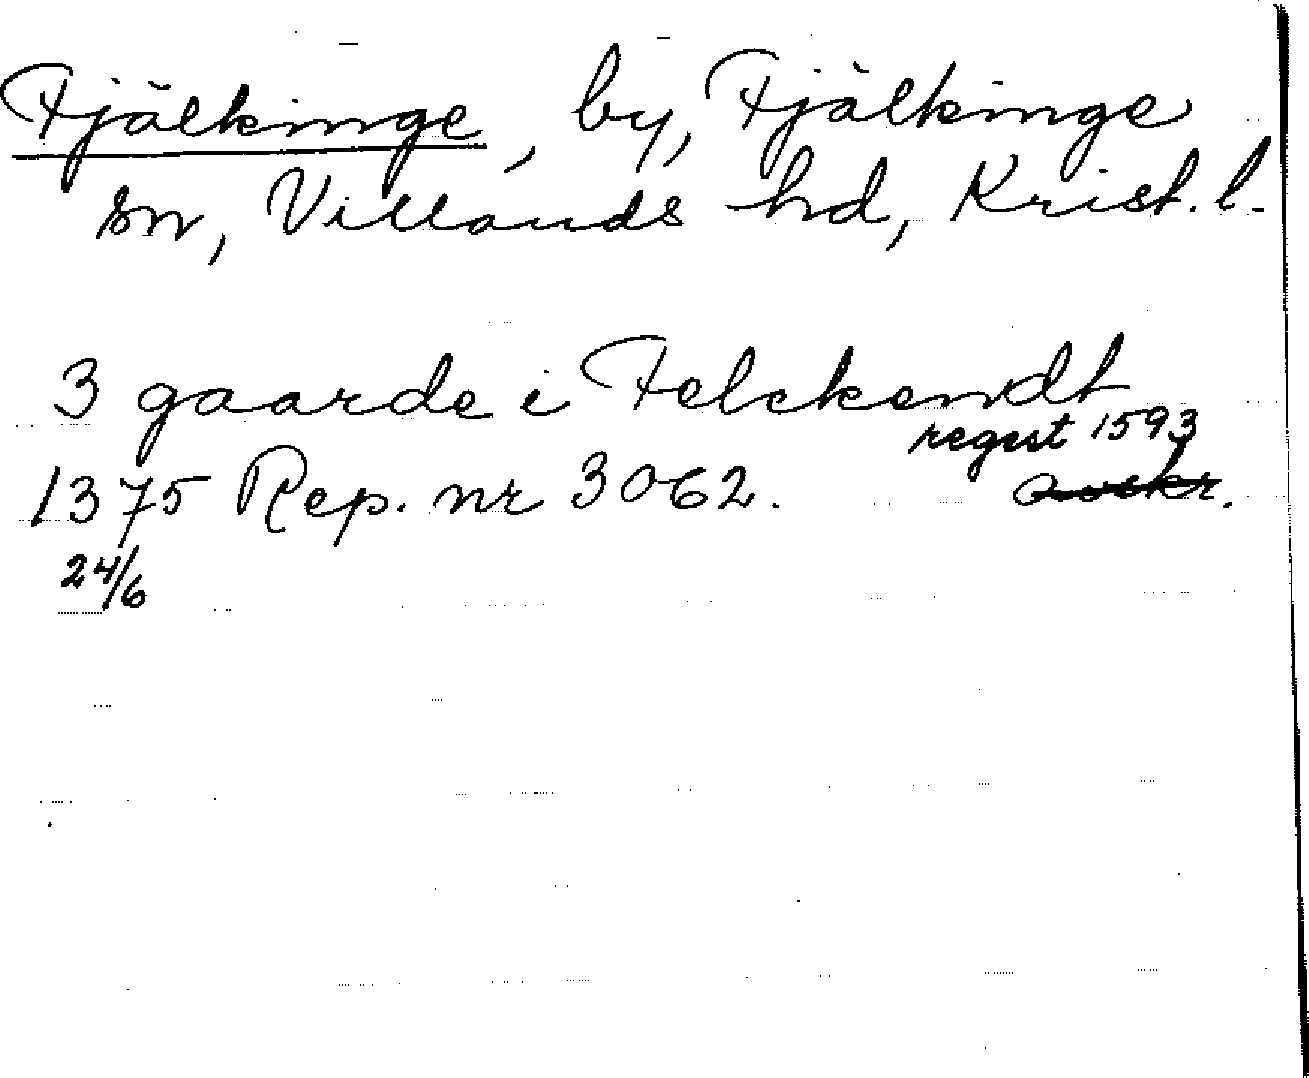 Fjälkinge, by, Fjälkinge
sn, Villands hd, Krist. l.
3 gaarde i Felckendt
regest 1593
1375 Rep. nr 3062. avskr.
24/6